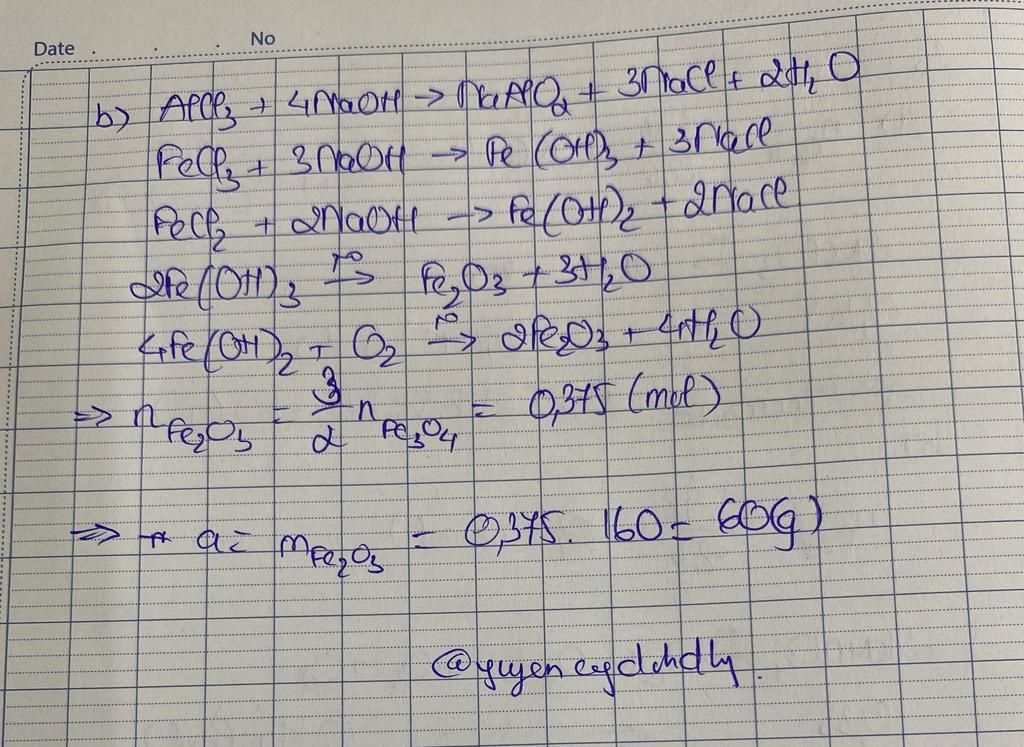 Date . . . No
b) AlCl₃ + 4NaOH → NaAlO₂ + 3NaCl + 2H₂O
FeCl₃ + 3NaOH → Fe(OH)₃ + 3NaCl
FeCl₂ + 2NaOH → Fe(OH)₂ + 2NaCl
2Fe(OH)₃ →(t°) Fe₂O₃ + 3H₂O
4Fe(OH)₂ + O₂ →(t°) 2Fe₂O₃ + 4H₂O
⇒ n Fe₂O₃ = 3/2 n Fe₃O₄ = 0,375 (mol)
⇒ a = m Fe₂O₃ = 0,375. 160 = 60(g)